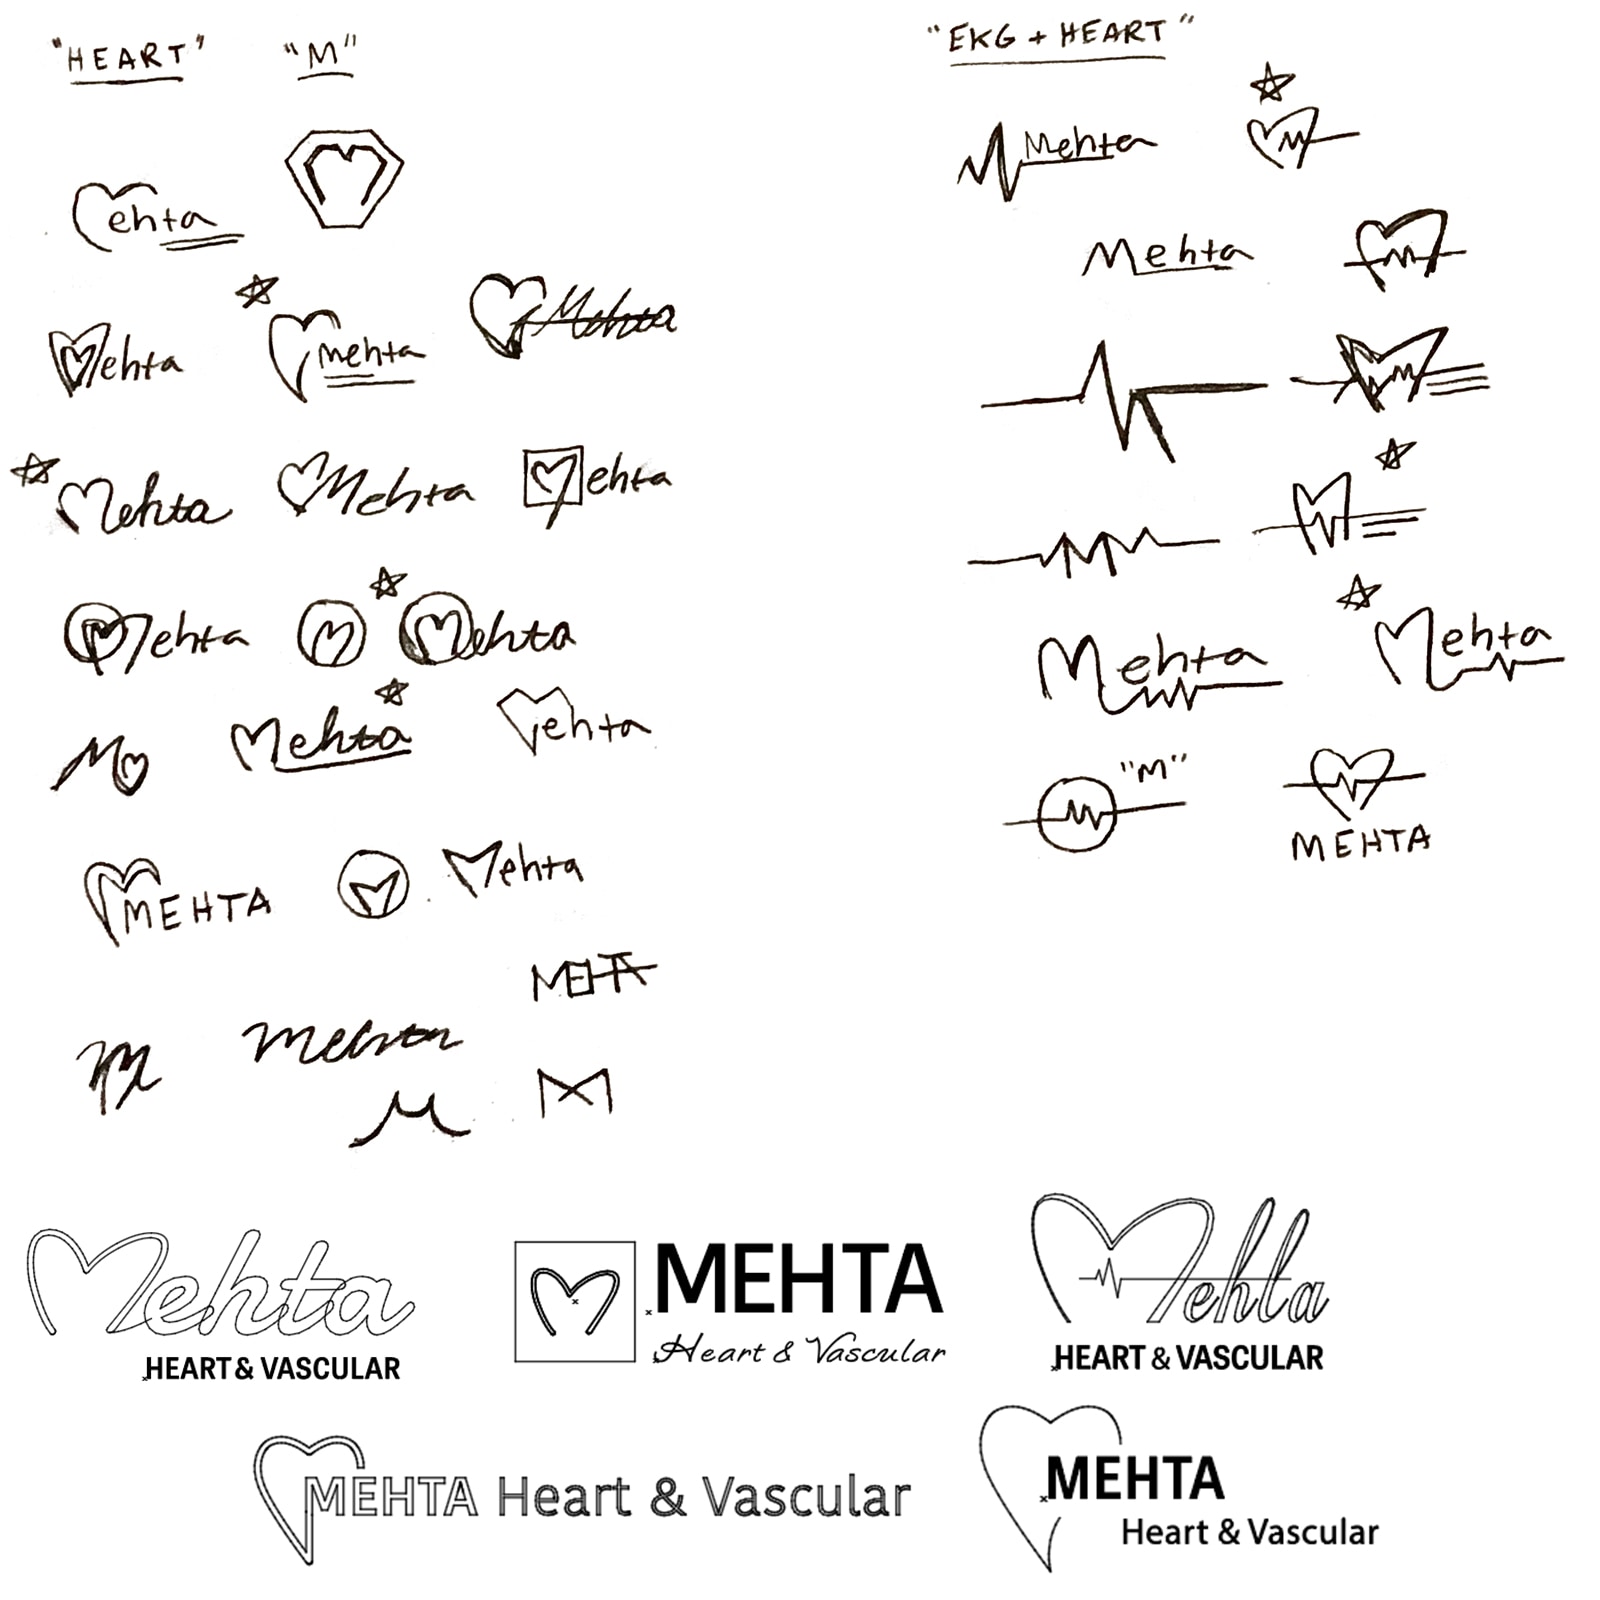 "HEART" "M"
"EKG + HEART"
Mehta
ehta
Mehta
Mehta
mehta
Mehta
Mehta
Mehta
Mehta
Mehta
Mehta
M
Mehta
Mehta
Mehta
M
Mehta
ehta
"M"
MEHTA
MEHTA
M
Mehta
MEHTA
M
Mehta
M
M
Mehta
HEART & VASCULAR
MEHTA
Heart & Vascular
Mehta
HEART & VASCULAR
MEHTA Heart & Vascular
MEHTA
Heart & Vascular